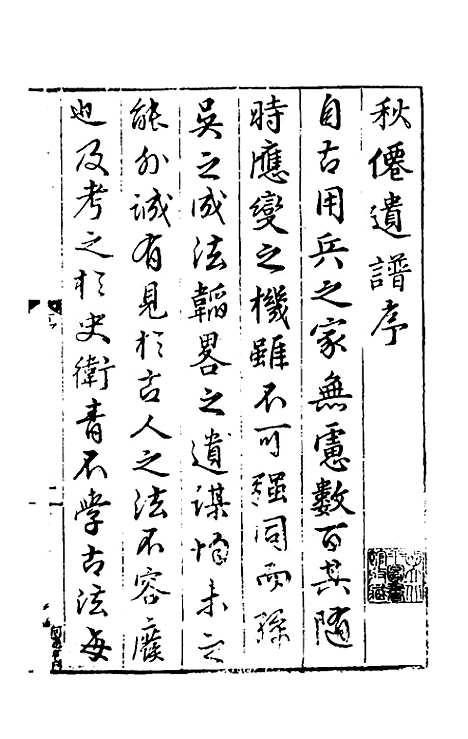 秋僊遺譜序
自古用兵之家無慮數百其隨
時應變之機雖不可強同而孫
吳之成法韜畧之遺謀惟未之
能外誠有見於古人之法不容廢
也及考之於史衛青不學古法每